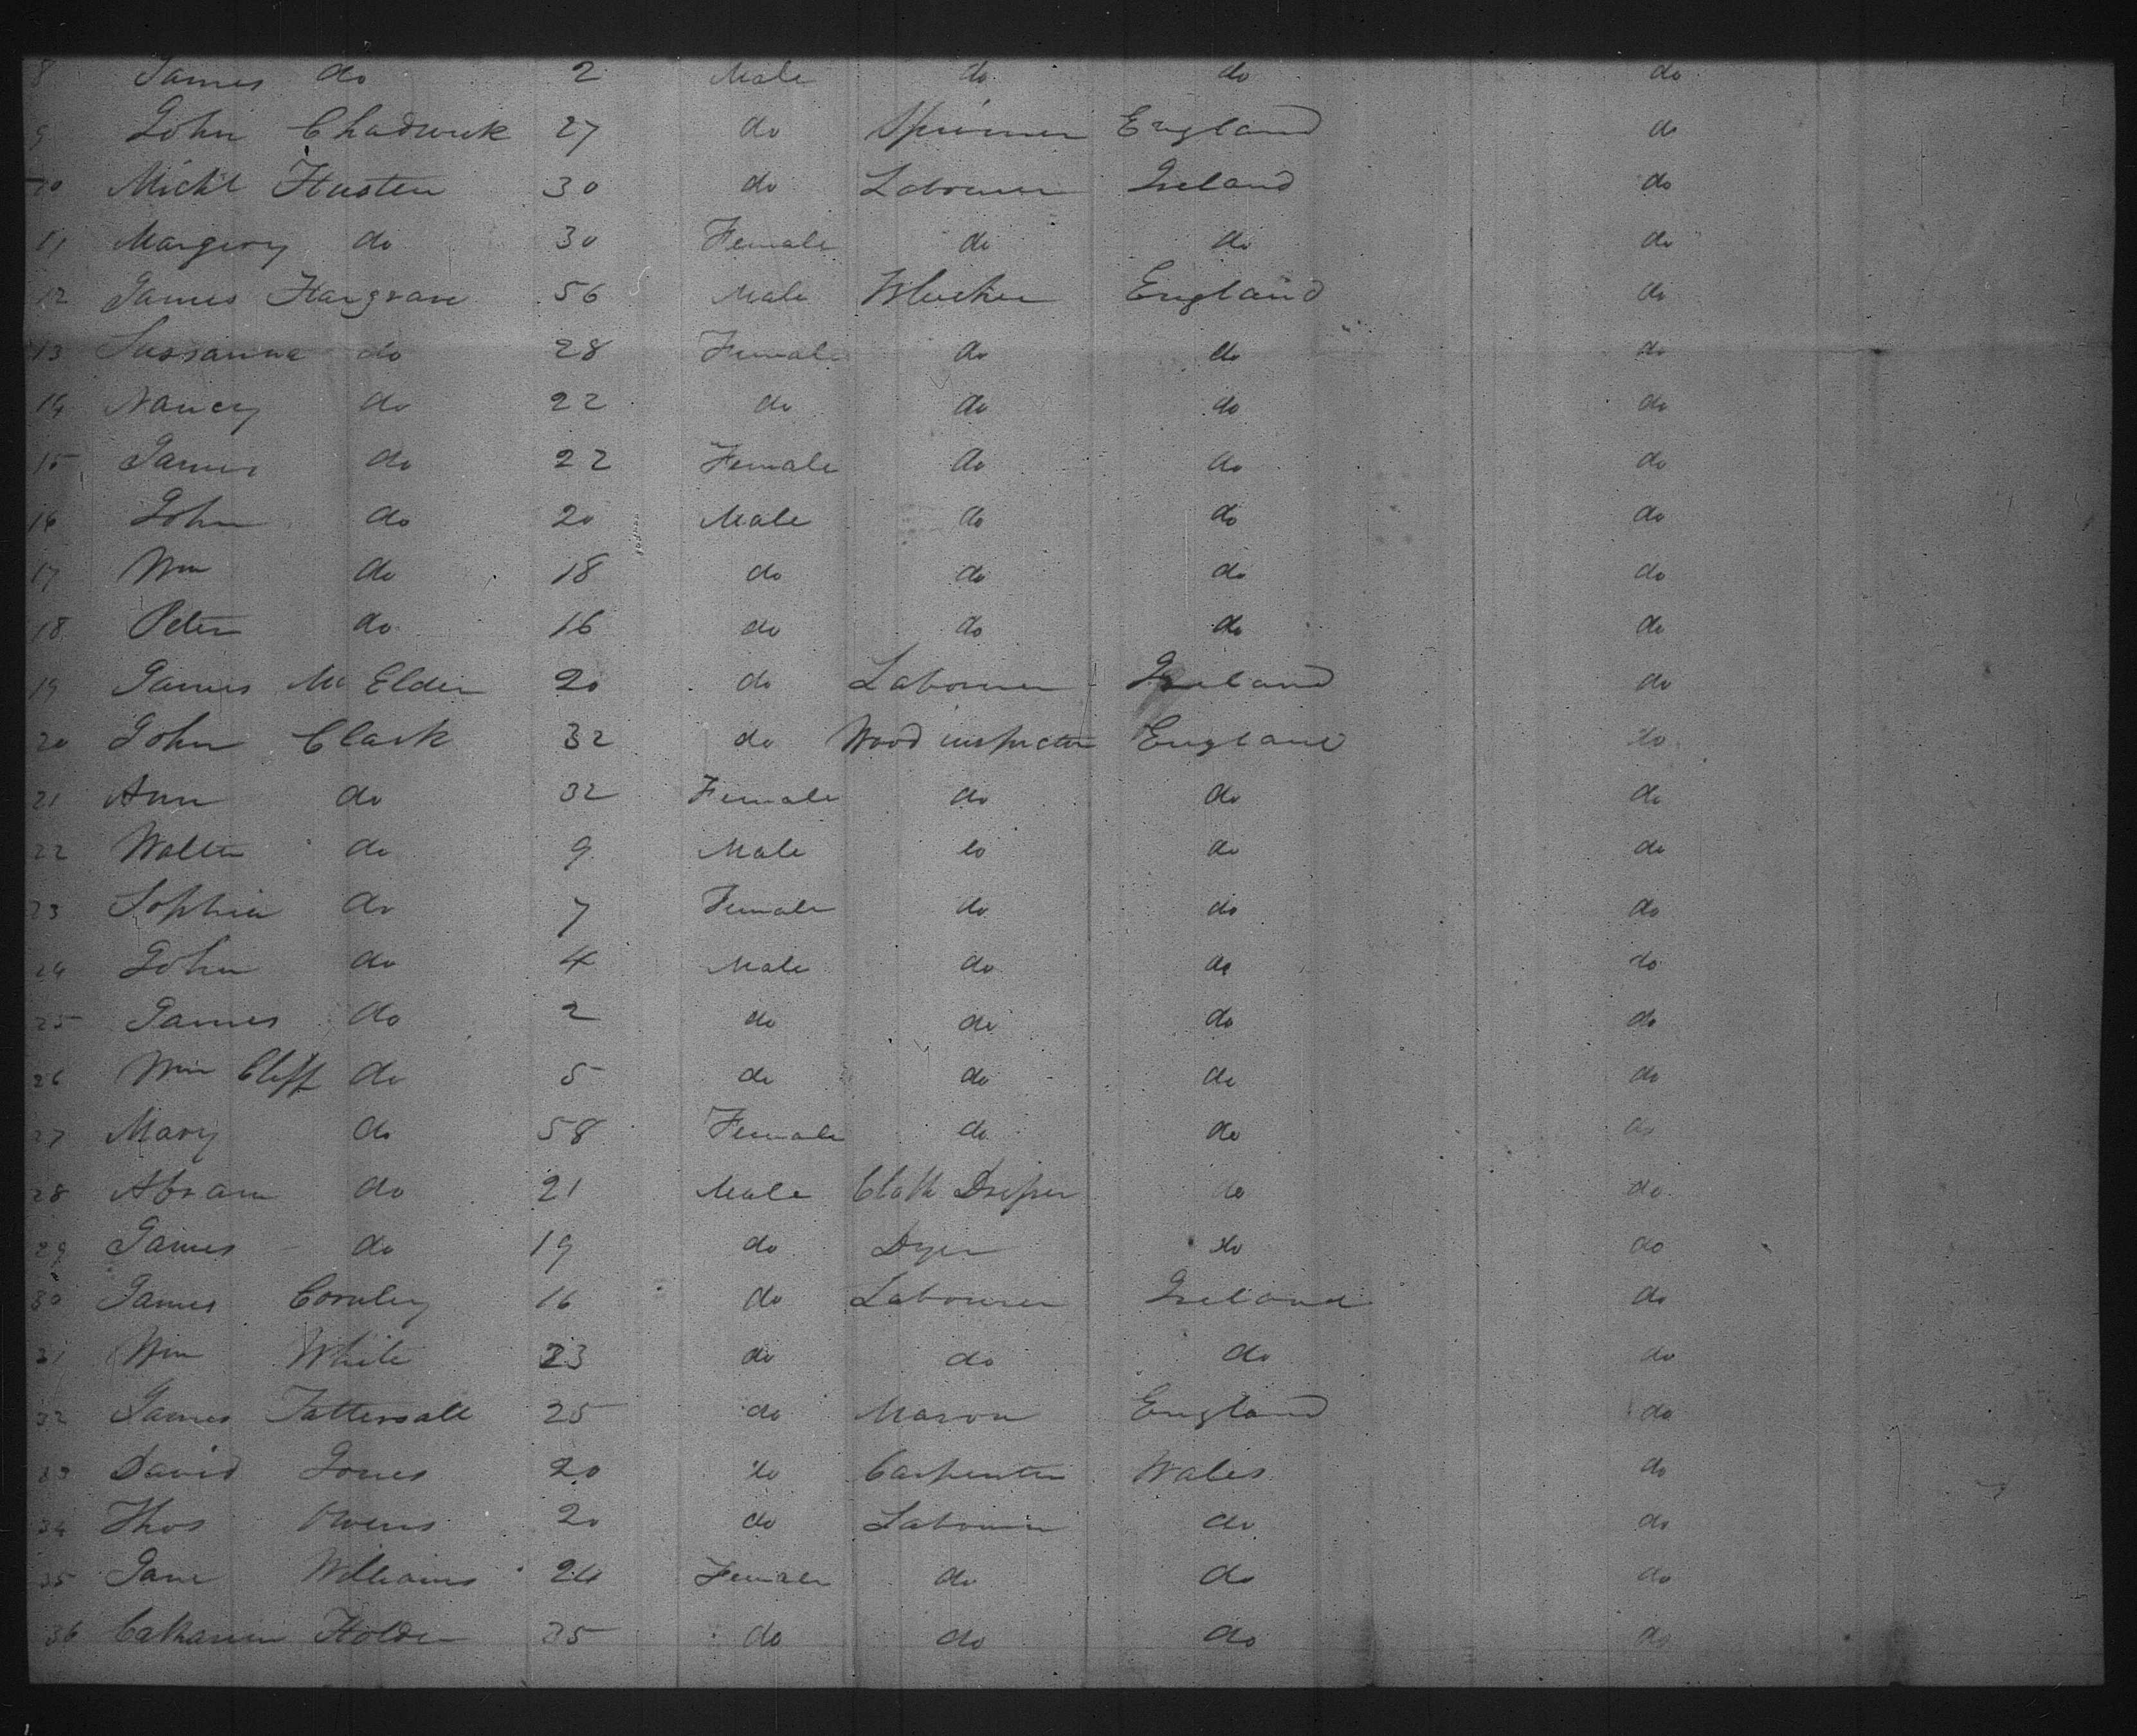 8 James do 2 Male do do do
9 John Chadwick 27 do Spinner England do
10 Michl Husten 30 do Labourer Ireland do
11 Margery do 30 Female do do do
12 James Hargrave 56 Male England do
13 Sussanna do 28 Female do do do
14 Nancy do 22 do do do do
15 James do 22 Female do do do
16 John do 20 Male do do do
17 Wm do 18 do do do do
18 Peter do 16 do do do do
19 James Mc Elder 20 do Labourer Ireland do
20 John Clark 32 do Wood inspector England do
21 Ann do 32 Female do do do
22 Walter do 9 Male do do do
23 Sophia do 7 Female do do do
24 John do 4 Male do do do
25 James do 2 do do do do
26 Wm Cliff do 5 do do do do
27 Mary do 58 Female do do do
28 Abram do 21 Male Cloth Dresser do do
29 James do 19 do Dyer do do
30 James Cornley 16 do Labourer Ireland do
31 Wm White 23 do do do do
32 James Tattersall 25 do Mason England do
33 David Jones 20 do Carpenter Wales do
34 Thos Owens 20 do Labourer do do
35 Jane Williams 24 Female do do do
36 Catharine Holder 35 do do do do